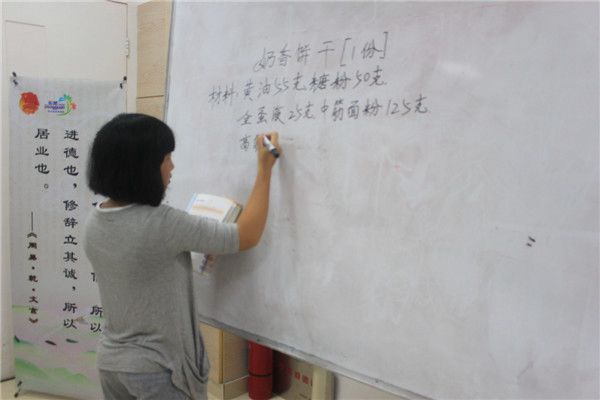 奶香饼干[1份]
材料:黄油55克 糖粉50克
全蛋液25克 中筋面粉125克
进德也,修辞立其诚,所以
居业也。
——《周易·乾·文言》